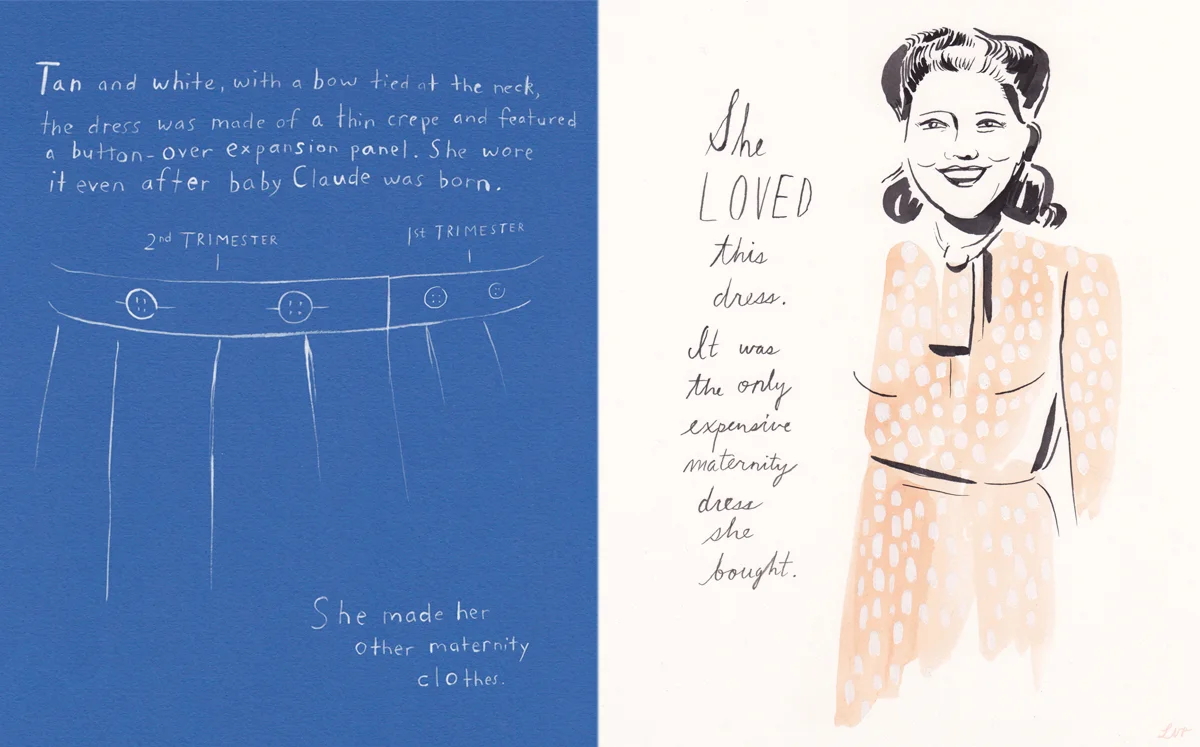 Tan and white, with a bow tied at the neck,
the dress was made of a thin crepe and featured
a button-over expansion panel. She wore
it even after baby Claude was born.
2nd TRIMESTER
1st TRIMESTER
She made her
other maternity
clothes.
She
LOVED
this
dress.
It was
the only
expensive
maternity
dress
she
bought.